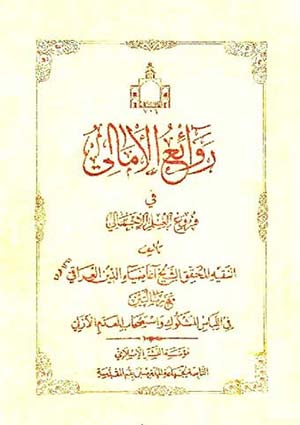 روائع الأمالي
في
فروع العلم الإجمالي
تأليف
الفقيه المحقق الشيخ آغا ضياء الدين العراقي
مع رسالتين
في اللباس المشكوك واستصحاب العدم الأزلي
مؤسسة النشر الإسلامي
التابعة لجماعة المدرسين بقم المقدسة